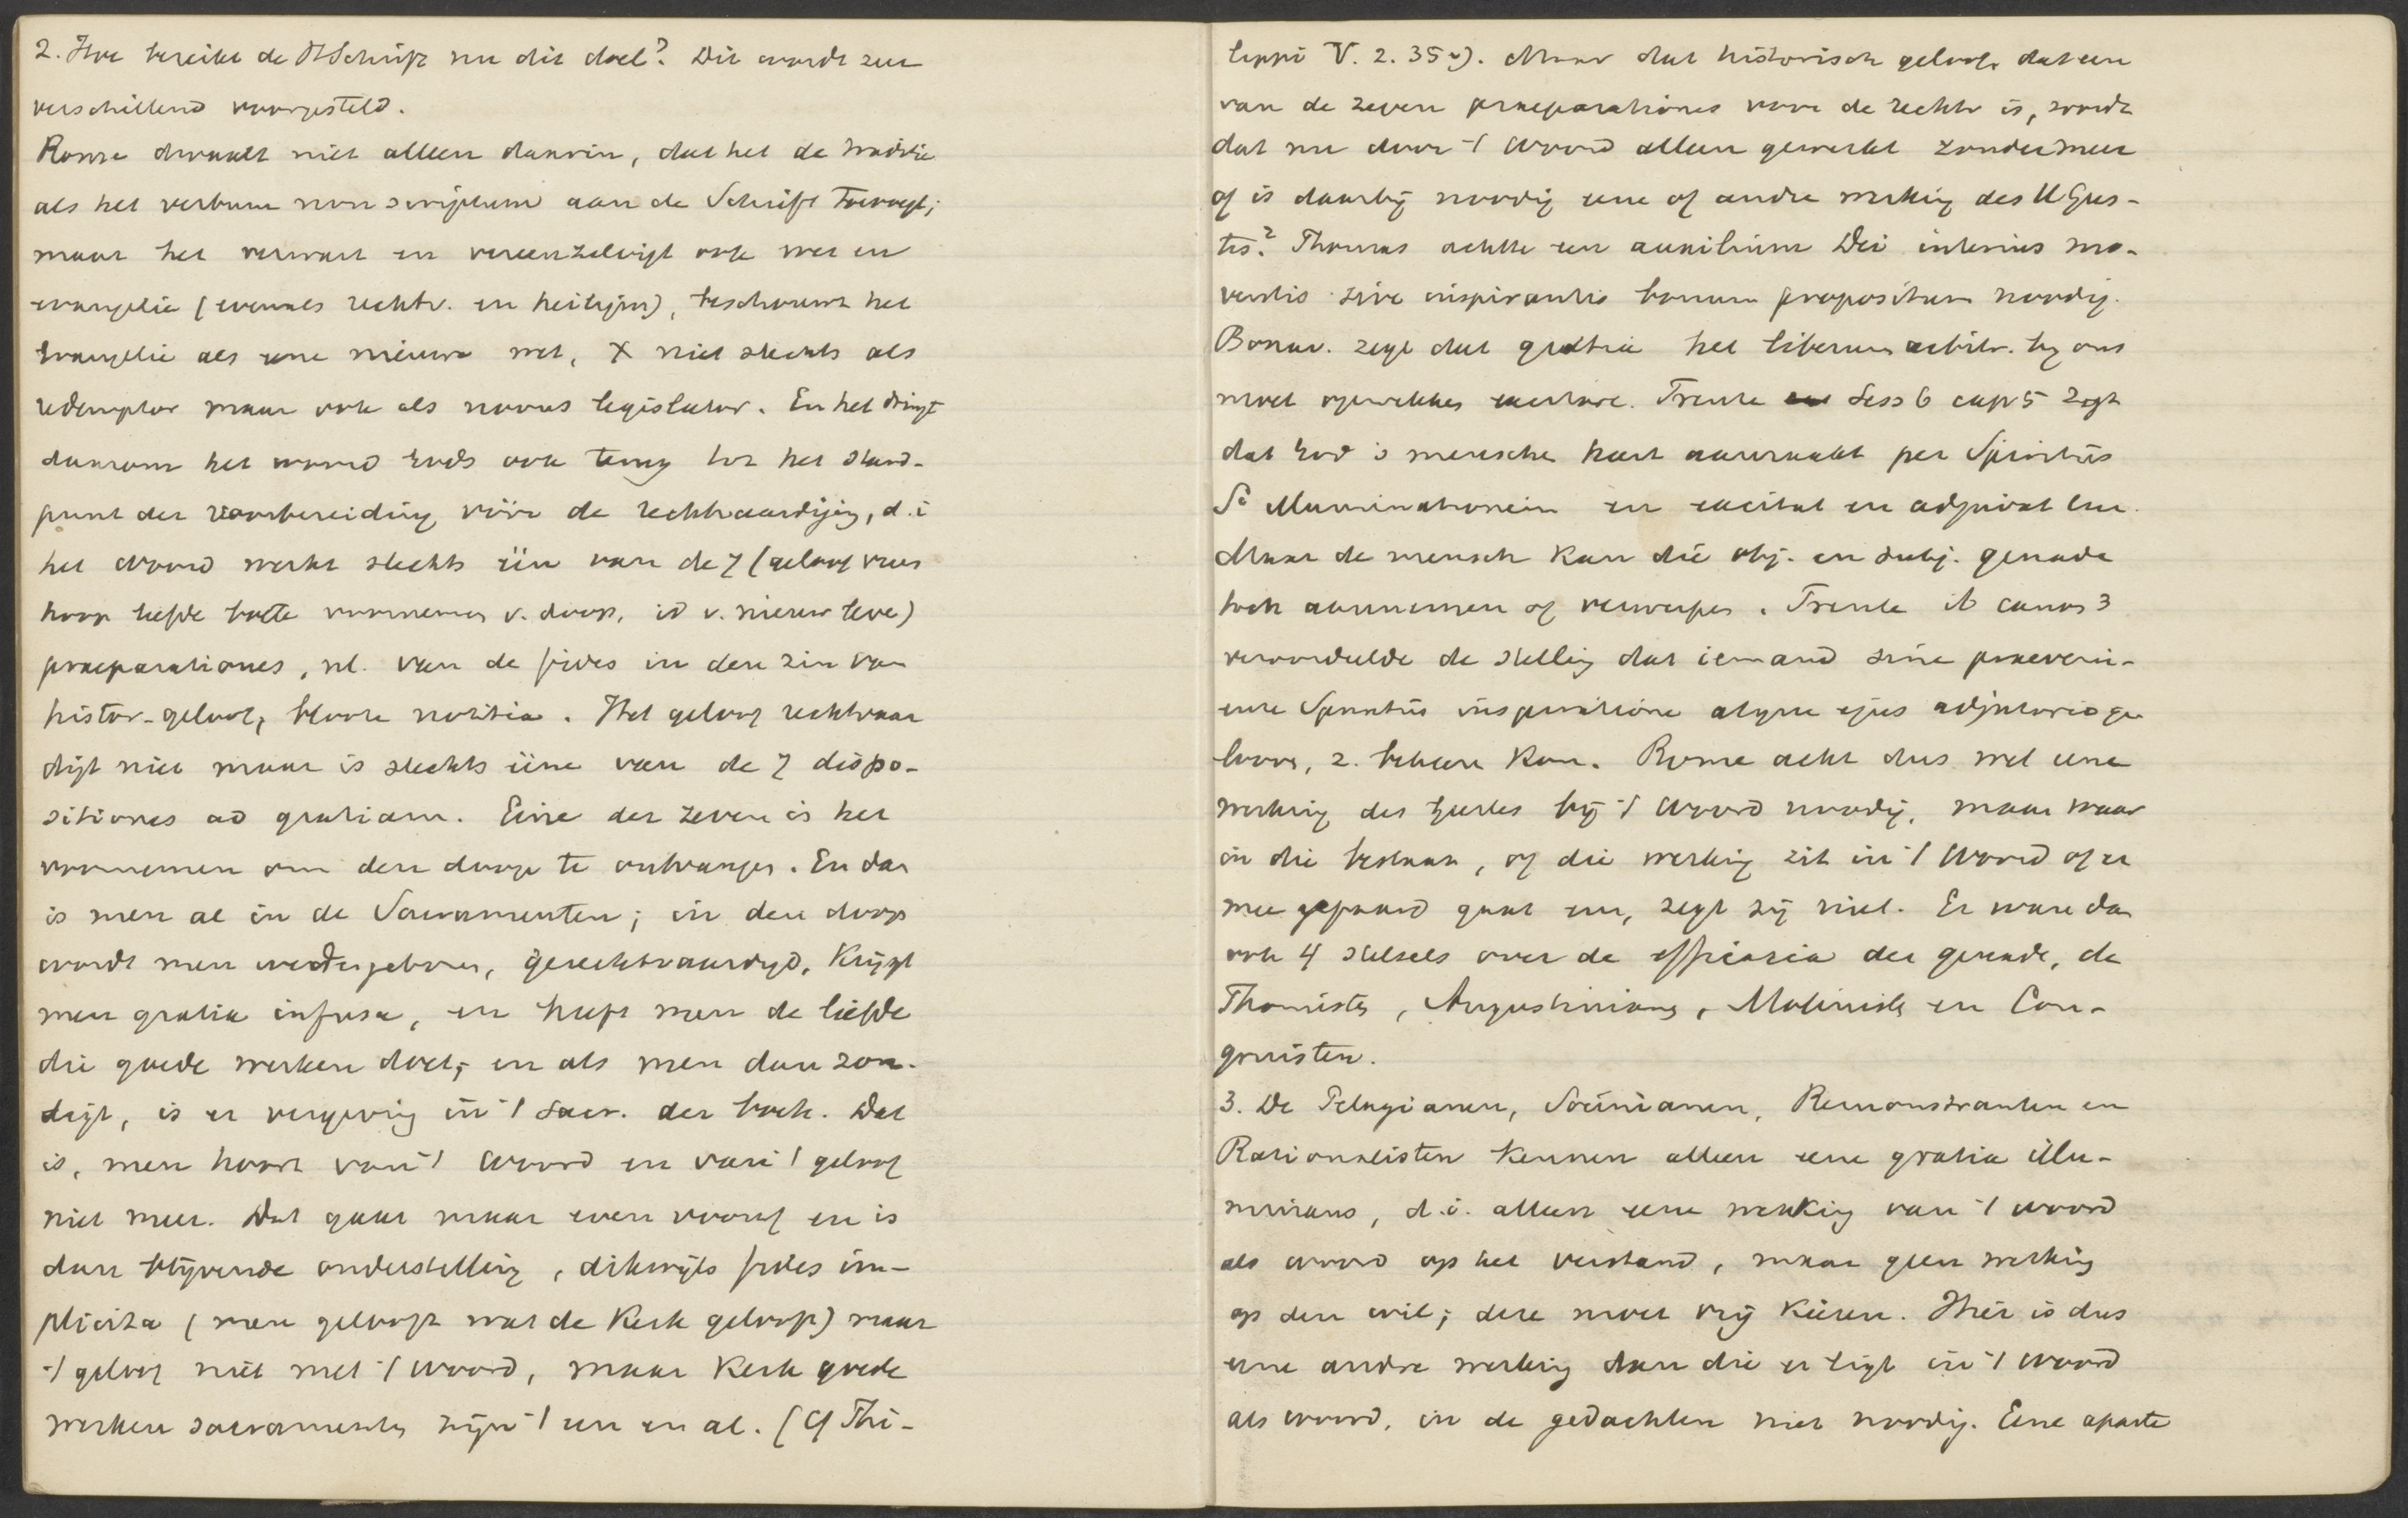 2. Hoe bereikt de HSchrift nu dit doel? Dit wordt zeer
verschillend voorgesteld.
Rome dwaalt niet alleen daarin, dat het de traditie
als het verbum non scriptum aan de Schrift toevoegt;
maar het verwart en vereenzelvigt ook wet en
evangelie (evenals rechtv. en heiligm), beschouwt het
Evangelie als eene nieuwe wet, X niet slechts als
redemptor maar ook als novus legislator. En het dringt
daarom het woord Gods ook terug tot het stand-
punt der voorbereiding vóór de rechtvaardiging, d.i
het woord werkt slechts één van de 7 (geloof vrees
hoop liefde boete voornemen v. doop, id v. nieuw leve)
praeparationes, nl. van de fides in den zin van
histor. geloof, bloote notitia. Het geloof rechtvaar
digt niet maar is slechts ééne van de 7 dispo-
sitiones ad gratiam. Eéne der zeven is het
voornemen om den doop te ontvangen. En dan
is men al in de Sacramenten; in den doop
wordt men wedergeboren, gerechtvaardigd, krijgt
men gratia infusa, en heeft men de liefde
die goede werken doet; en als men dan zon-
digt, is er vergeving in 't Sacr. der boete. Dat
is, men hoort van 't woord en van 't geloof
niet meer. Dat gaat maar even vooraf en is
dan blijvende onderstelling, dikwijls fides im-
plicita (men gelooft wat de Kerk gelooft) maar
't geloof niet met 't woord, maar Kerk goede
werken sacramenten zijn 't een en al. (Cf Phi-
lippi V. 2. 35 v). Maar dat historisch geloof, dat een
van de zeven praeparationes voor de rechtv is, wordt
dat nu door 't woord alleen gewerkt zondermeer
of is daarbij noodig eene of andre werking des HGees-
tes? Thomas achtte een auxilium Dei interius mo-
ventis sive inspirantis bonum propositum noodig.
Bonav. zegt dat gratia het liberum arbitr. bij ons
moet opwekken excitare. Trente Sess 6 cap 5 zegt
dat God 's menschen hart aanraakt per Spiritus
Si illuminationem en excitat en adjuvat hem.
Maar de mensch kan die obj. en subj. genade
toch aannemen of verwerpen. Trente ib canon 3
veroordeelde de stelling dat iemand sine praeveni-
ente Spiritus inspiratione atque ejus adjutorio ge
looven, z. bekeeren kan. Rome acht dus wel eene
werking des Geestes bij 't woord noodig, maar waar
in die bestaat, of die werking zit in 't woord of er
mee gepaard gaat enz, zegt zij niet. Er ware dan
ook 4 stelsels over de efficacia der genade, de
Thomisten, Augustinianen, Molinisten en Con-
gruisten.
3. De Pelagianen, Socinianen, Remonstranten en
Rationalisten kennen alleen eene gratia illu-
minans, d.i. alleen eene werking van 't woord
als woord op het verstand, maar geen werking
op den wil; deze moet vrij kiezen. Hier is dus
eene andre werking dan die er ligt in 't woord
als woord, in de gedachten niet noodig. Eene aparte